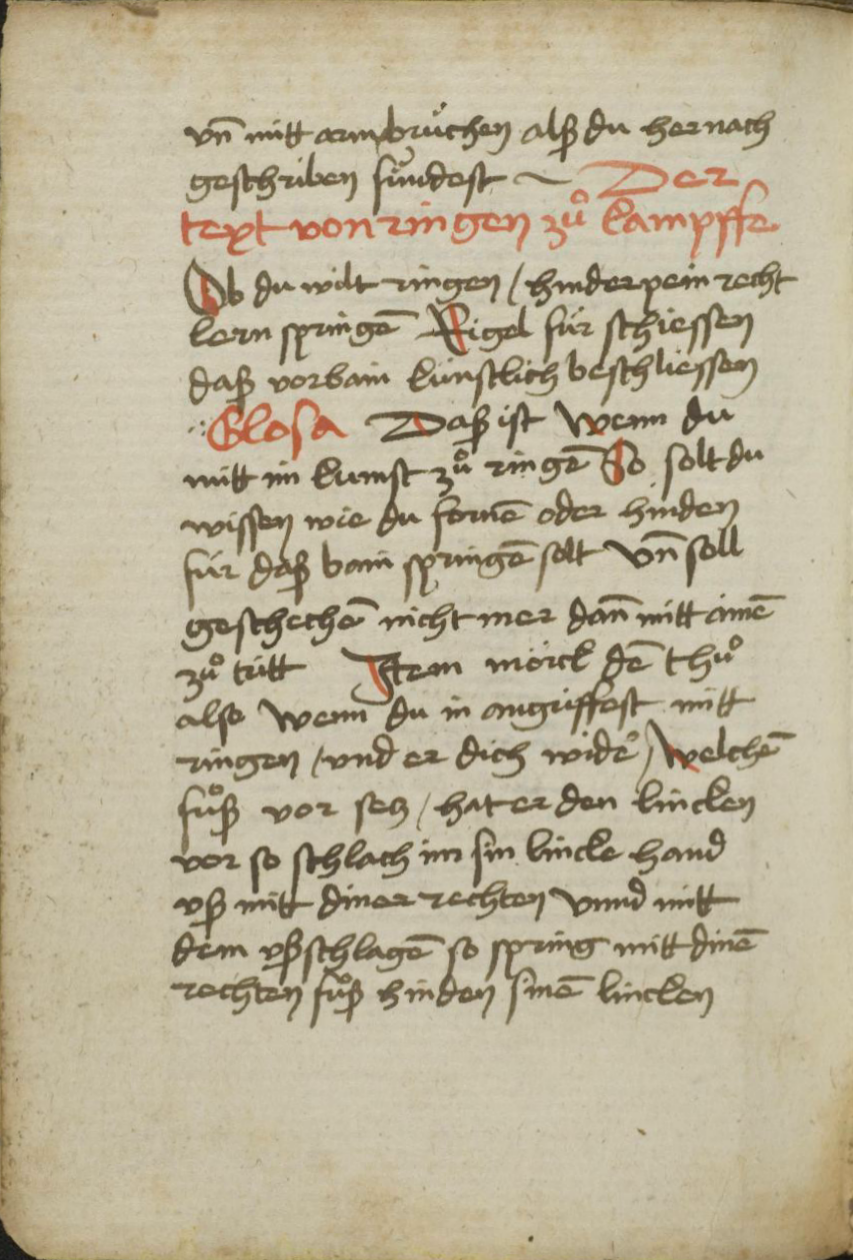 vn̄ mitt armbrúchen alß du hernach
geschriben fúndest ~ Der
text von ringen zů kampffe
Ob du wilt ringen / hinderpein recht
lern springē Rigel fúr schiessen
daß vorbain kúnstlich beschliessen
∴ Glosa Daß ist Wenn du
mitt im kumst zů ringē So solt du
wissen wie du fornē oder hinden
fúr daß bain springē solt Vn̄ soll
geschechē nicht mer dan̄ mitt ainē
zů tritt Item mörck dē thů
also Wenn du in angriffest mitt
ringen / vnd er dich widẽ / Welchē
fůß vor setz / hat er den lincken
vor so schlach im sin lincke hand
vß mitt diner rechten Vnnd mitt
dem vßschlagē so spring mitt dinē
rechten fůß hinden sinē lincken